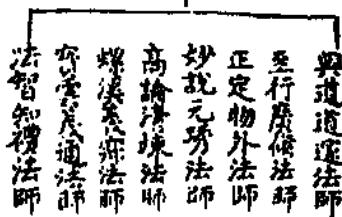 興道道邃法師
至行廣修法師
正定物外法師
妙說元琇法師
高論清竦法師
螺溪義寂法師
寶雲義通法師
法智知禮法師